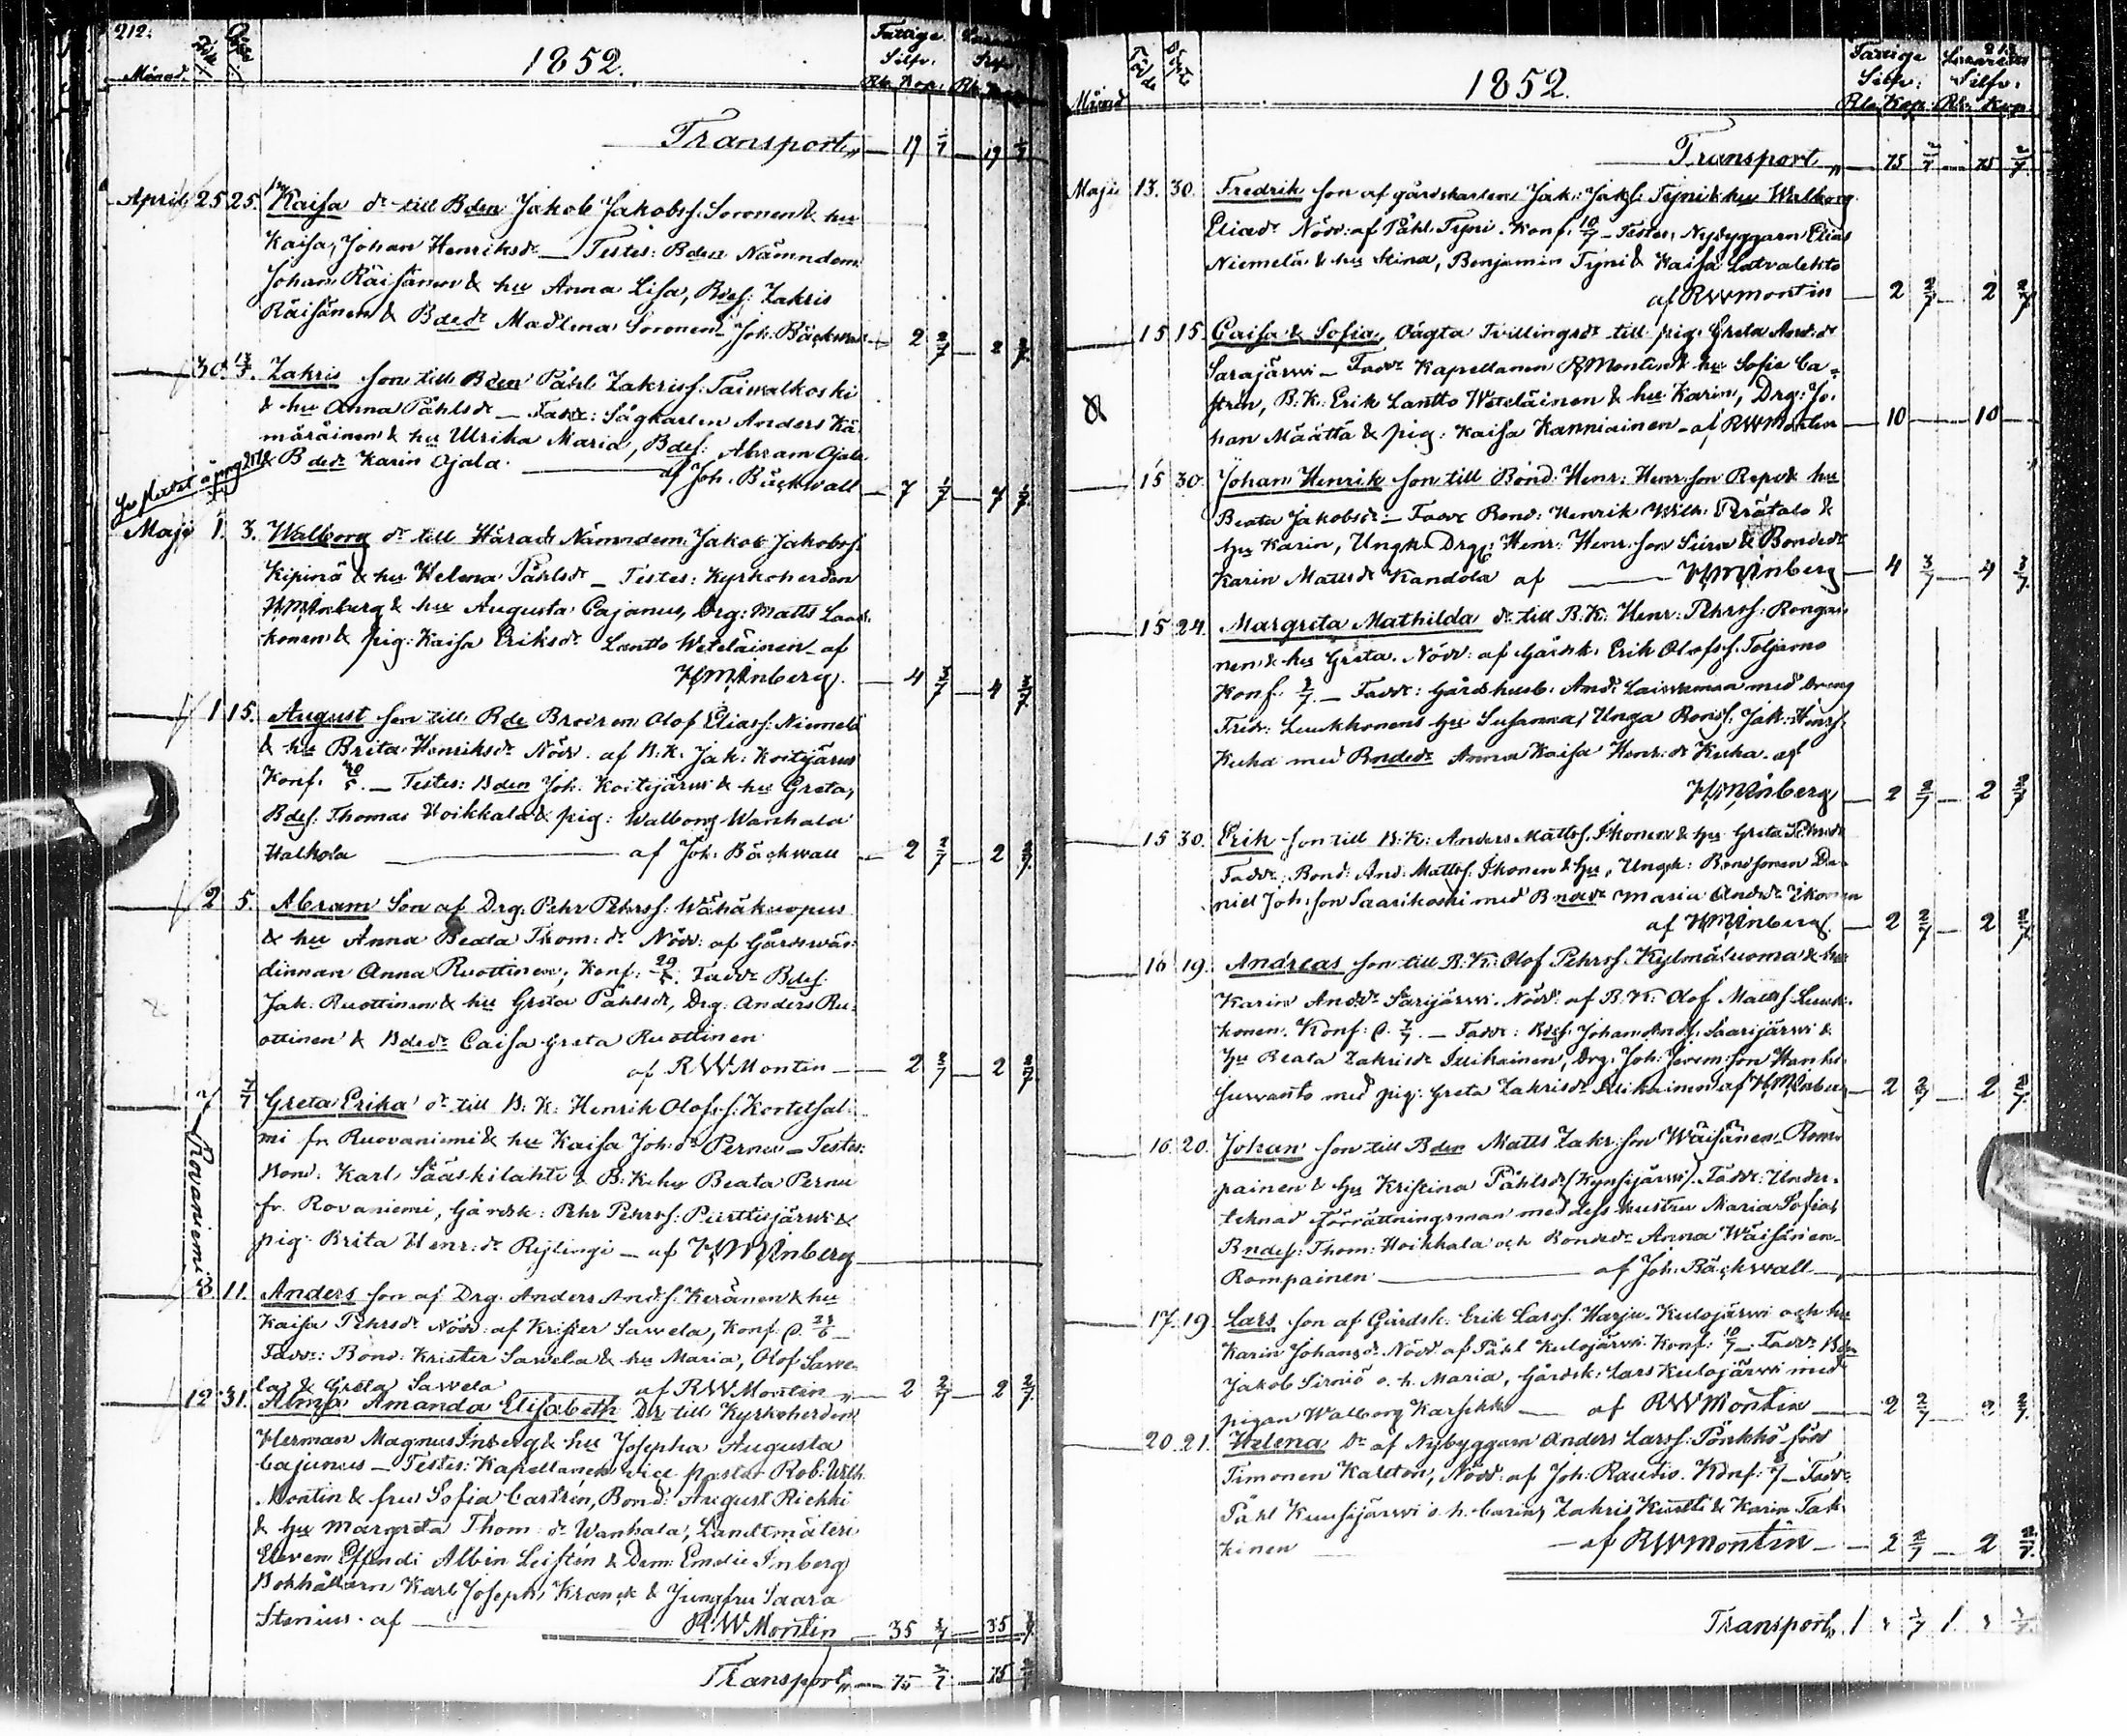 212.
Månad.
Född
Döpt
1852.
Fattige Silfv. Rb. Kop.
Transport
19 1/7 19 1/7
April 25 25. Kaisa dr till Bden Jakob Jakobss. Soronen & hu
Kaisa, Johan Henriksdr — Testes: Bden Nämndem.
Johan Räisänen & hu Anna Lisa, Bdes. Zakris
Räisänen & Bdedr Madlena Soronen Joh. Bäckwall 2 2/7 2 2/7
30. Zakris son till Bden Påhl Zakriss. Taiwalkoski
& hu Anna Påhlsdr — Fadd: Sågkarlen Anders Kä-
märäinen & hu Ulrika Maria, Bdes. Abram Ojala
& Bdedr Karin Ojala. — af Joh. Bäckwall 7 1/7 7 1/7
Maji 1. 3. Walborg dr till Härads Nämndem. Jakob Jakobss.
Kipinä & hu Helena Påhlsdr — Testes: Kyrkoherden
HMInberg & hu Augusta Cajanus, Drg: Matts Laa-
konen & pig: Kaisa Eriksdr Lantto Weteläinen af
HMInberg. 4 3/7 4 3/7
1 15. August son till Bde Brodren Olof Eliass. Niemelä
& hu Brita Henriksdr Növd. af B.K. Jak: Koitijärvi
Konf. — Testes: Bden Joh. Koitijärwi & hu Greta,
Bdes. Thomas Hoikkala & pig: Walborg Wanhala
Halkola — af Joh. Bäckwall 2 2/7 2 2/7
2 5. Abram Son af Drg. Pehr Pehrss. Wähäkuopus
& hu Anna Beata Thom: dr Növd: af Gårdswär-
dinnan Anna Ruottinen; Konf: Fadd: Bdes.
Jak. Ruottinen & hu Greta Påhlsdr, Drg: Anders Ru-
ottinen & Bdedr Caisa Greta Ruottinen
af RWMontin 2 2/7 2 2/7
7 Greta Erika dr till B. K. Henrik Olofss. Kortelsal-
mi fr. Ruovaniemi & hu Kaisa Joh: dr Pernu — Testes:
Bond: Karl Sääskilahti & B.K. hu Beata Pernu
fr. Rovaniemi, Gårdsk: Pehr Pehrss: Purttijärwi &
pig: Brita Henr: dr — af HMInberg
Rovaniemi
8 11. Anders son af Drg. Anders Ands. Keränen & hu
Kaisa Pehrsdr Növd: af Krister Sawela, Konf.
Fadd: Bond: Krister Sawela & hu Maria, Olof Sawe-
la & Greta Sawela af RWMontin 2 2/7 2 2/7
12 31. Alma Amanda Elisabeth Dr till Kyrkoherden
Herman Magnus Inberg & hu Josepha Augusta
Cajanus — Testes: Kapellanen vice pastor Rob: Wilh.
Montin & fru Sofia Castrén, Bond: August Riekki
& hu Margreta Thom: dr Wanhala, Landtmäteri
Eleven Effendi Albin Leistén & Dem: Emelie Inberg
Bokhållarn Karl Joseph Kranck & Jungfru Saara
Stenius. af — RWMontin 35 35
Transport 75 2/7 75 2/7
Månad
Född
Döpt
1852.
Fattige Silfv: Rb. Kop.
Lazarettet Silfv: Rb. Kop.
Transport 75 2/7 75 2/7
Maji 13. 30. Fredrik son af gårdskarlen Jak: Jakobss. Tyni & hu Walborg
Eliædr Növd: af Påhl Tyni. Konf. 10/7 — Testes, Nybyggarn Elias
Niemelä & hu Stina, Benjamin Tyni & Kaisa Latvalehto
af RWMontin 2 2/7 2 2/7
15 15. Caisa & Sofia, Oägta Tvillingsdr till pig. Greta And: dr
Sarajärwi — Fadd: Kapellanen RMontin & hu Sofie Ca-
strén, B.K. Erik Lantto Weteläinen & hu Karin, Drg: Jo-
han Määttä & pig: Kaisa Kanniainen — af RWMontin 10 10
15 30. Johan Henrik son till Bond: Henr: Henr. son Repo & hu
Beata Jakobsdr — Fadd: Bond: Henrik Wilh. Perätalo &
hu Karin, Ungk. Drg: Henr: Henr. son Siira & Bondedr
Karin Mattsdr Kandola af — HMInberg 4 3/7 4 3/7
15 24. Margreta Mathilda dr till B.K. Henr: Pehrss. Rongai-
nen & hu Greta. Növd: af Gårdsk. Erik Olofss. Toljamo
Konf. — Fadd: Gårdshusb. And: med Dreng
Fredr: Luukkonens hu Susanna, Unga Bonds. Jak: Henrs.
Kuha med Bndedr Anna Kaisa Henr: dr Kuha. af
HMInberg 2 2/7 2 2/7
15 30. Erik son till B.K: Anders Mattss. Ikonen & hu Greta
Fadd: Bond: And: Mattss. Ikonen & hu, Ungk: Bondsonen Da-
niel Joh: son Saarikoski med Bndedr Maria Anddr Ikonen
af HMInberg. 2 2/7 2 2/7
16 19. Andreas son till B.K: Olof Pehrss. Kylmäluoma & hu
Karin Anddr Särijärwi. Növd: af B.K. Olof Mattss Luuk-
konen. Konf: d. 7/7. — Fadd: Bdes. Johan Ands. Saarijärwi &
hu Beata Zakrisdr Iliikainen, Drg. Joh. Jerem: son Hanhi-
suwanto med pig. Greta Zakrisdr Iliikainen af HMInberg 2 2/7 2 2/7
16. 20. Johan son till Bden Matts Zakr: son Wäisänen Rom-
painen & hu Kristina Påhlsdr (Kynsijärwi). Fadd: Under-
teknad förrättningsman med dess hustru Maria Sofia,
Bndes: Thom: Hoikkala och Bondedr Anna Wäisänen
Rompainen — af Joh. Bäckwall
17. 19 Lars son af Gårdsk: Erik Larss. Harju Kulojärwi och hu
Karin Johansdr Növd: af Påhl Kulojärwi Konf: — Fadd: Bden
Jakob Sirniö o. h. Maria, Gårdsk. Lars Kulojärwi med
pigan Walborg — af RWMontin 2 2/7 2 2/7
20. 21. Helena Dr af Nybyggarn Anders Larss. Pönkkö född
Timonen Kalston, Növd: af Joh: Raudio. Konf: 7 — Fadd:
Påhl Kuusijärwi o. h. Carin, Zakris Kurtti & Karin Tak-
kinen — af RWMontin 2 2/7 2 2/7
Transport 1 1